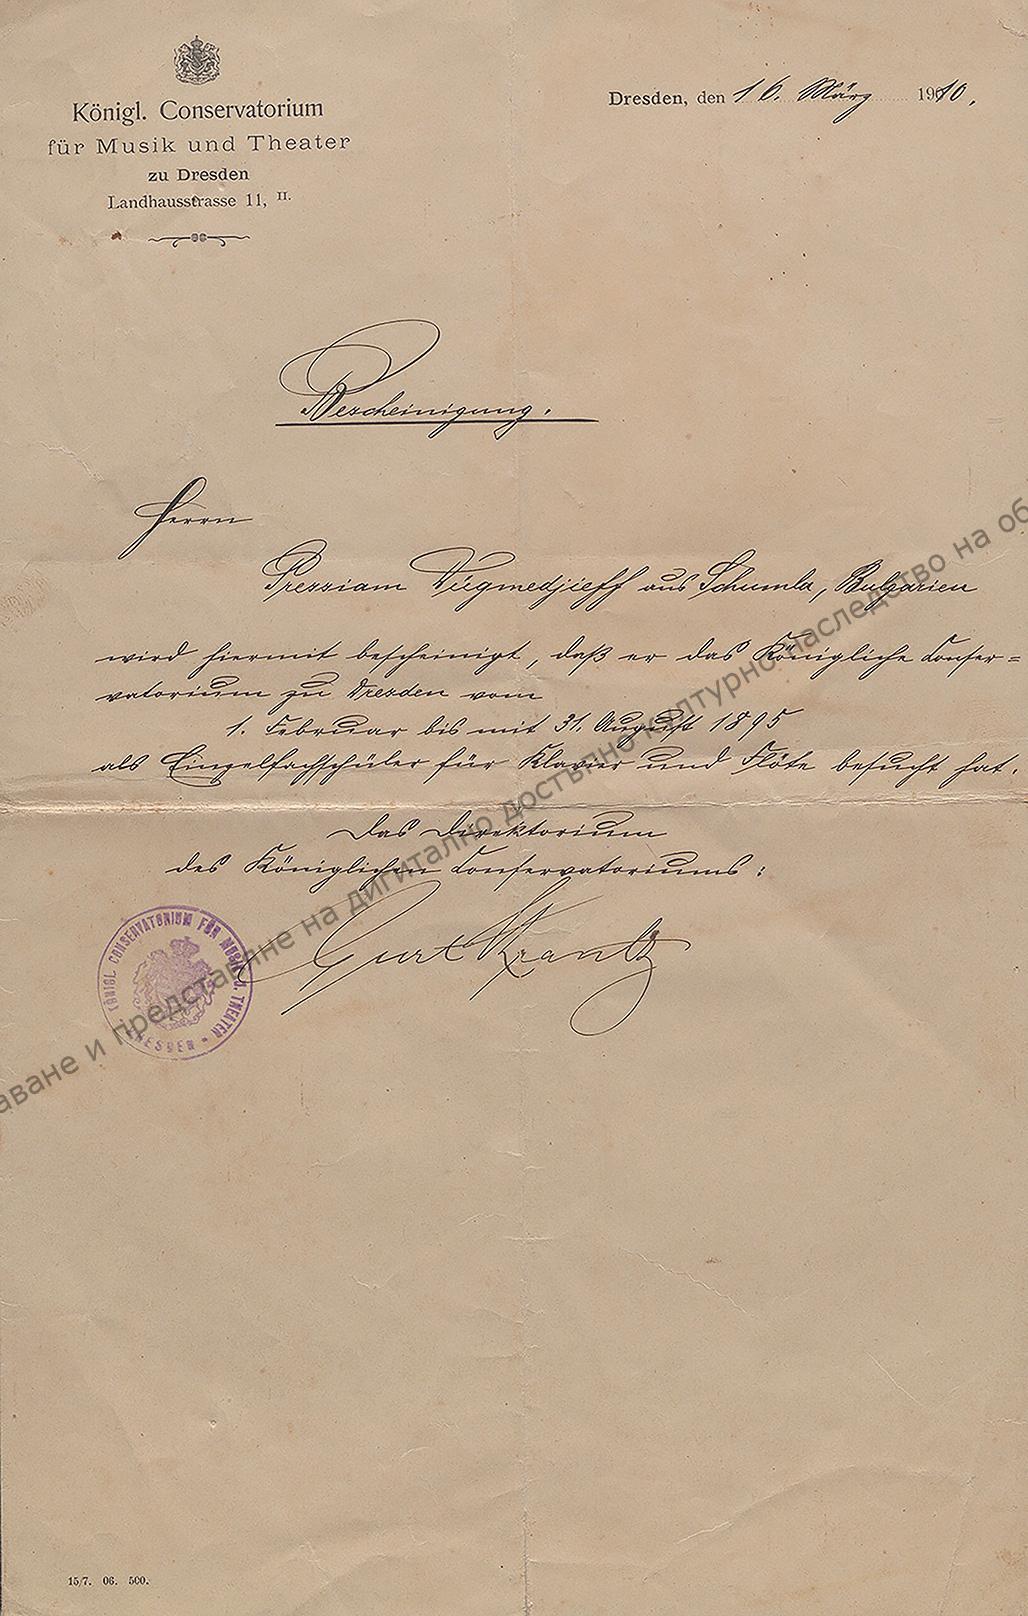 Königl. Conservatorium
für Musik und Theater
zu Dresden
Landhausstrasse 11, II.
Dresden, den 16. März 1910.
Bescheinigung.
Herrn
Pressiam Dúgmedjieff aus Schumla, Bulgarien
wird hiermit bescheinigt, daß er das Königliche Conser=
vatorium zu Dresden vom
1. Februar bis mit 31. August 1895
als Einzelfachschüler für Klavier und Flöte besucht hat.
Das Direktorium
des Königlichen Conservatoriums:
Curt Krantz
KÖNIGL. CONSERVATORIUM FÜR MUSIK U. THEATER
DRESDEN
и представяне на дигитално достъпно културно наследство на
15/7. 06. 500.